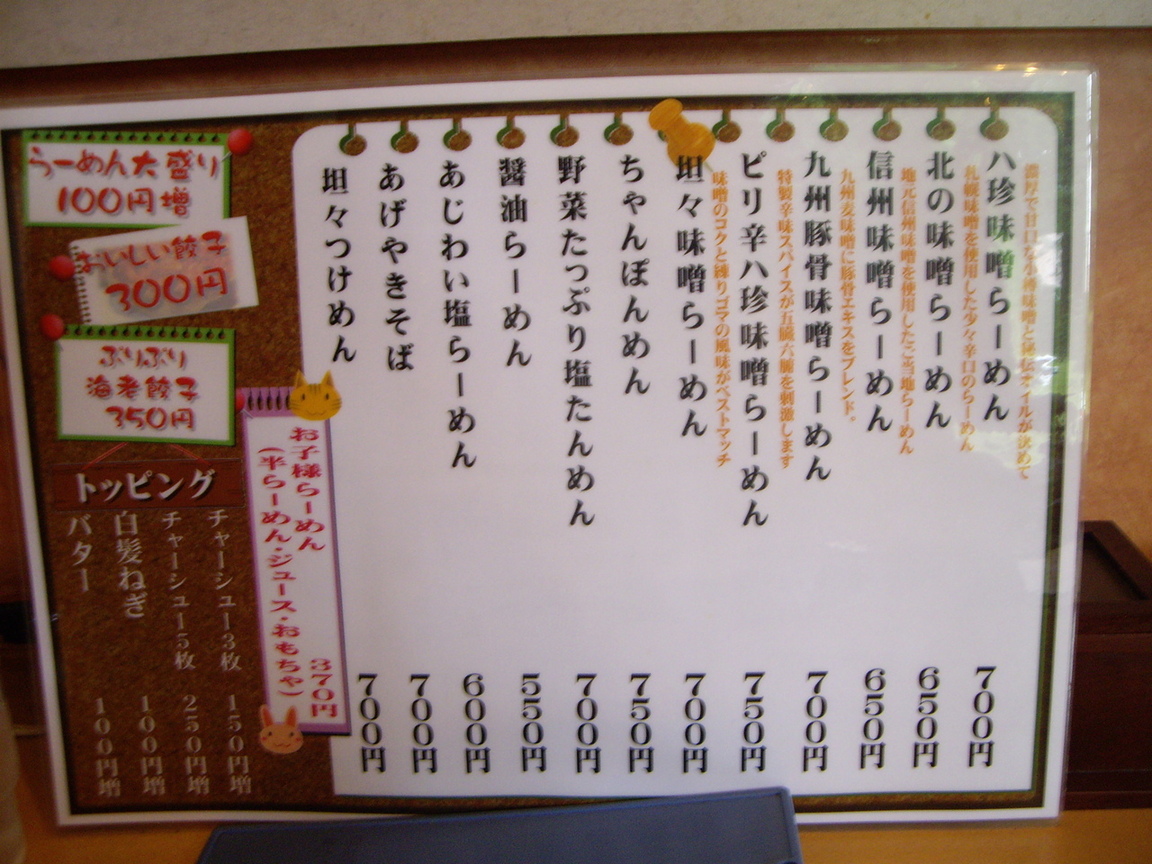 濃厚で甘口な小樽味噌と秘伝オイルが決めて
八珍味噌らーめん 700円
札幌味噌を使用した少々辛口のらーめん
北の味噌らーめん 650円
地元信州味噌を使用したご当地らーめん
信州味噌らーめん 650円
九州麦味噌に豚骨エキスをブレンド。
九州豚骨味噌らーめん 700円
特製辛味スパイスが五臓六腑を刺激します
ピリ辛八珍味噌らーめん 750円
味噌のコクと練りゴマの風味がベストマッチ
坦々味噌らーめん 700円
ちゃんぽんめん 750円
野菜たっぷり塩たんめん 700円
醤油らーめん 550円
あじわい塩らーめん 600円
あげやきそば 700円
坦々つけめん 700円
お子様らーめん 370円
(半らーめん・ジュース・おもちゃ)
らーめん大盛り
100円増
おいしい餃子
300円
ぷりぷり
海老餃子
350円
トッピング
チャーシュー3枚 150円増
チャーシュー5枚 250円増
白髪ねぎ 100円増
バター 100円増